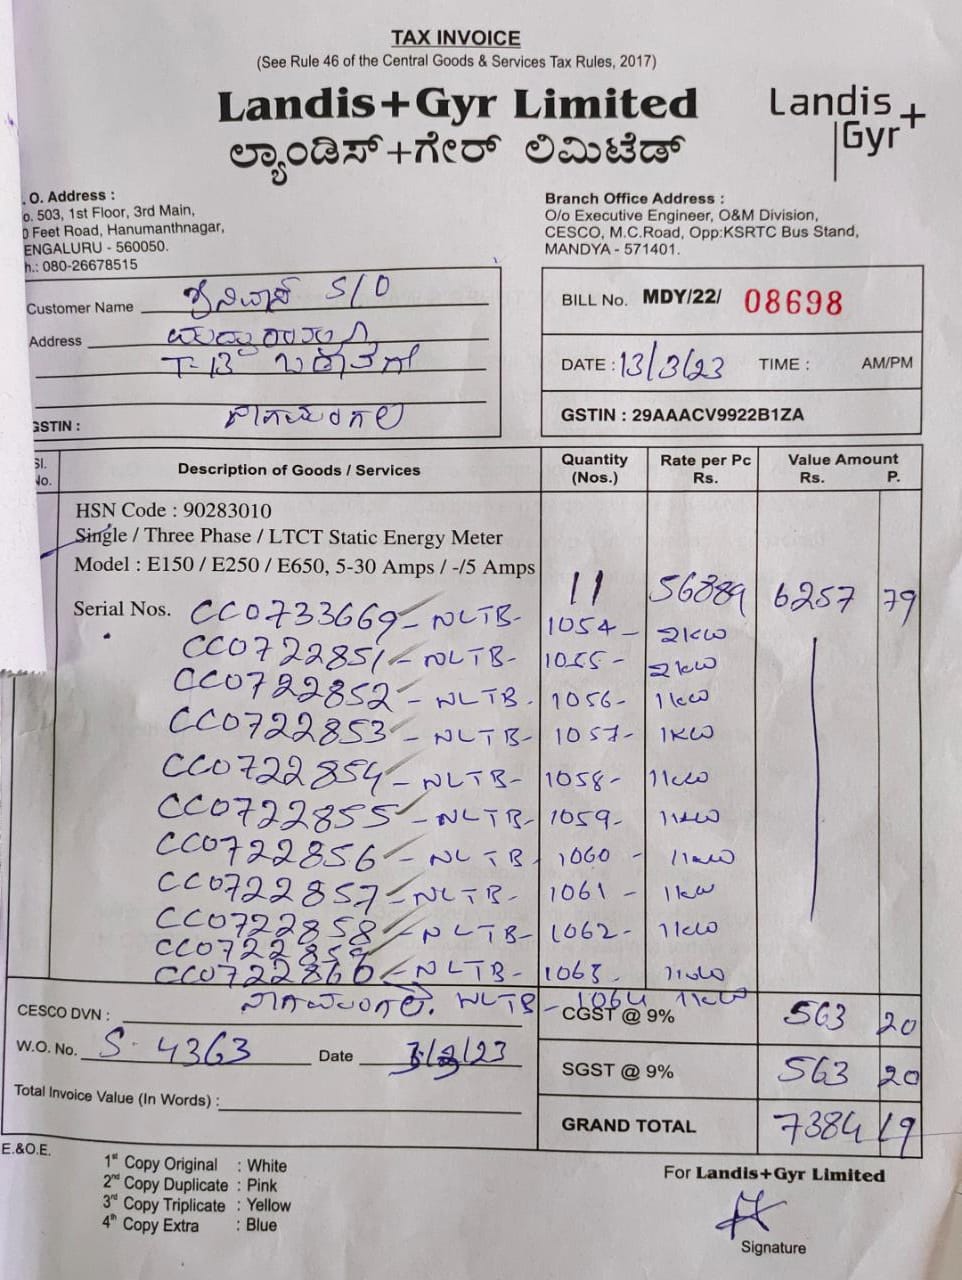 TAX INVOICE
(See Rule 46 of the Central Goods & Services Tax Rules, 2017)
Landis+Gyr Limited
ಲ್ಯಾಂಡಿಸ್+ಗೇರ್ ಲಿಮಿಟೆಡ್
Landis+
Gyr
. O. Address :
o. 503, 1st Floor, 3rd Main,
0 Feet Road, Hanumanthnagar,
ENGALURU - 560050.
h.: 080-26678515
Branch Office Address :
O/o Executive Engineer, O&M Division,
CESCO, M.C.Road, Opp:KSRTC Bus Stand,
MANDYA - 571401.
Customer Name ಶ್ರೀನಿವಾಸ್ S/O
Address
ನಾಗಮಂಗಲ
GSTIN :
BILL No. MDY/22/ 08698
DATE : 13/3/23 TIME : AM/PM
GSTIN : 29AAACV9922B1ZA
Sl. No. Description of Goods / Services Quantity (Nos.) Rate per Pc Rs. Value Amount Rs. P.
HSN Code : 90283010
Single / Three Phase / LTCT Static Energy Meter
Model : E150 / E250 / E650, 5-30 Amps / -/5 Amps
11 56889 6257 79
Serial Nos. CC0733669 - NLTB - 1054 - 2kw
CC0722851 - NLTB - 1055 - 2kw
CC0722852 - NLTB - 1056 - 1kw
CC0722853 - NLTB - 1057 - 1kw
CC0722854 - NLTB - 1058 - 1kw
CC0722855 - NLTB - 1059 - 1kw
CC0722856 - NLTB - 1060 - 1kw
CC0722857 - NLTB - 1061 - 1kw
CC0722858 - NLTB - 1062 - 1kw
CC0722859
CC0722860 - NLTB - 1063 - 1kw
CESCO DVN : ನಾಗಮಂಗಲ. NLTB - 1064 1kw
CGST @ 9% 563 20
W.O. No. S-4363 Date
SGST @ 9% 563 20
Total Invoice Value (In Words) :
GRAND TOTAL 7384 19
E.&O.E.
1st Copy Original : White
2nd Copy Duplicate : Pink
3rd Copy Triplicate : Yellow
4th Copy Extra : Blue
For Landis+Gyr Limited
Signature